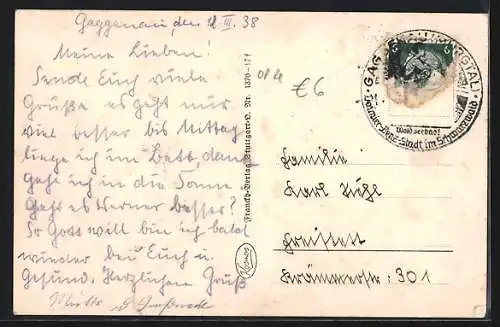 Gaggenau, den 12. III. 38
Meine Lieben!
Sende Euch viele
Grüße es geht mir
viel besser bis Mittag
liege ich im Bett, dann
gehe ich in die Sonne
Geht es Werner besser?
So Gott will bin ich bald
wieder bei Euch u.
Gesund. Herzlichen Gruß
Franckh-Verlag Stuttgart-O. Nr. 1370-17f
Kosmos
€6
GAGGENAU (MURGTAL)
Waldseebad
Daimler-Benz-Stadt im Schwarzwald
6
Familie
Karl Kühl
Freistett
Krämmerstr. 301